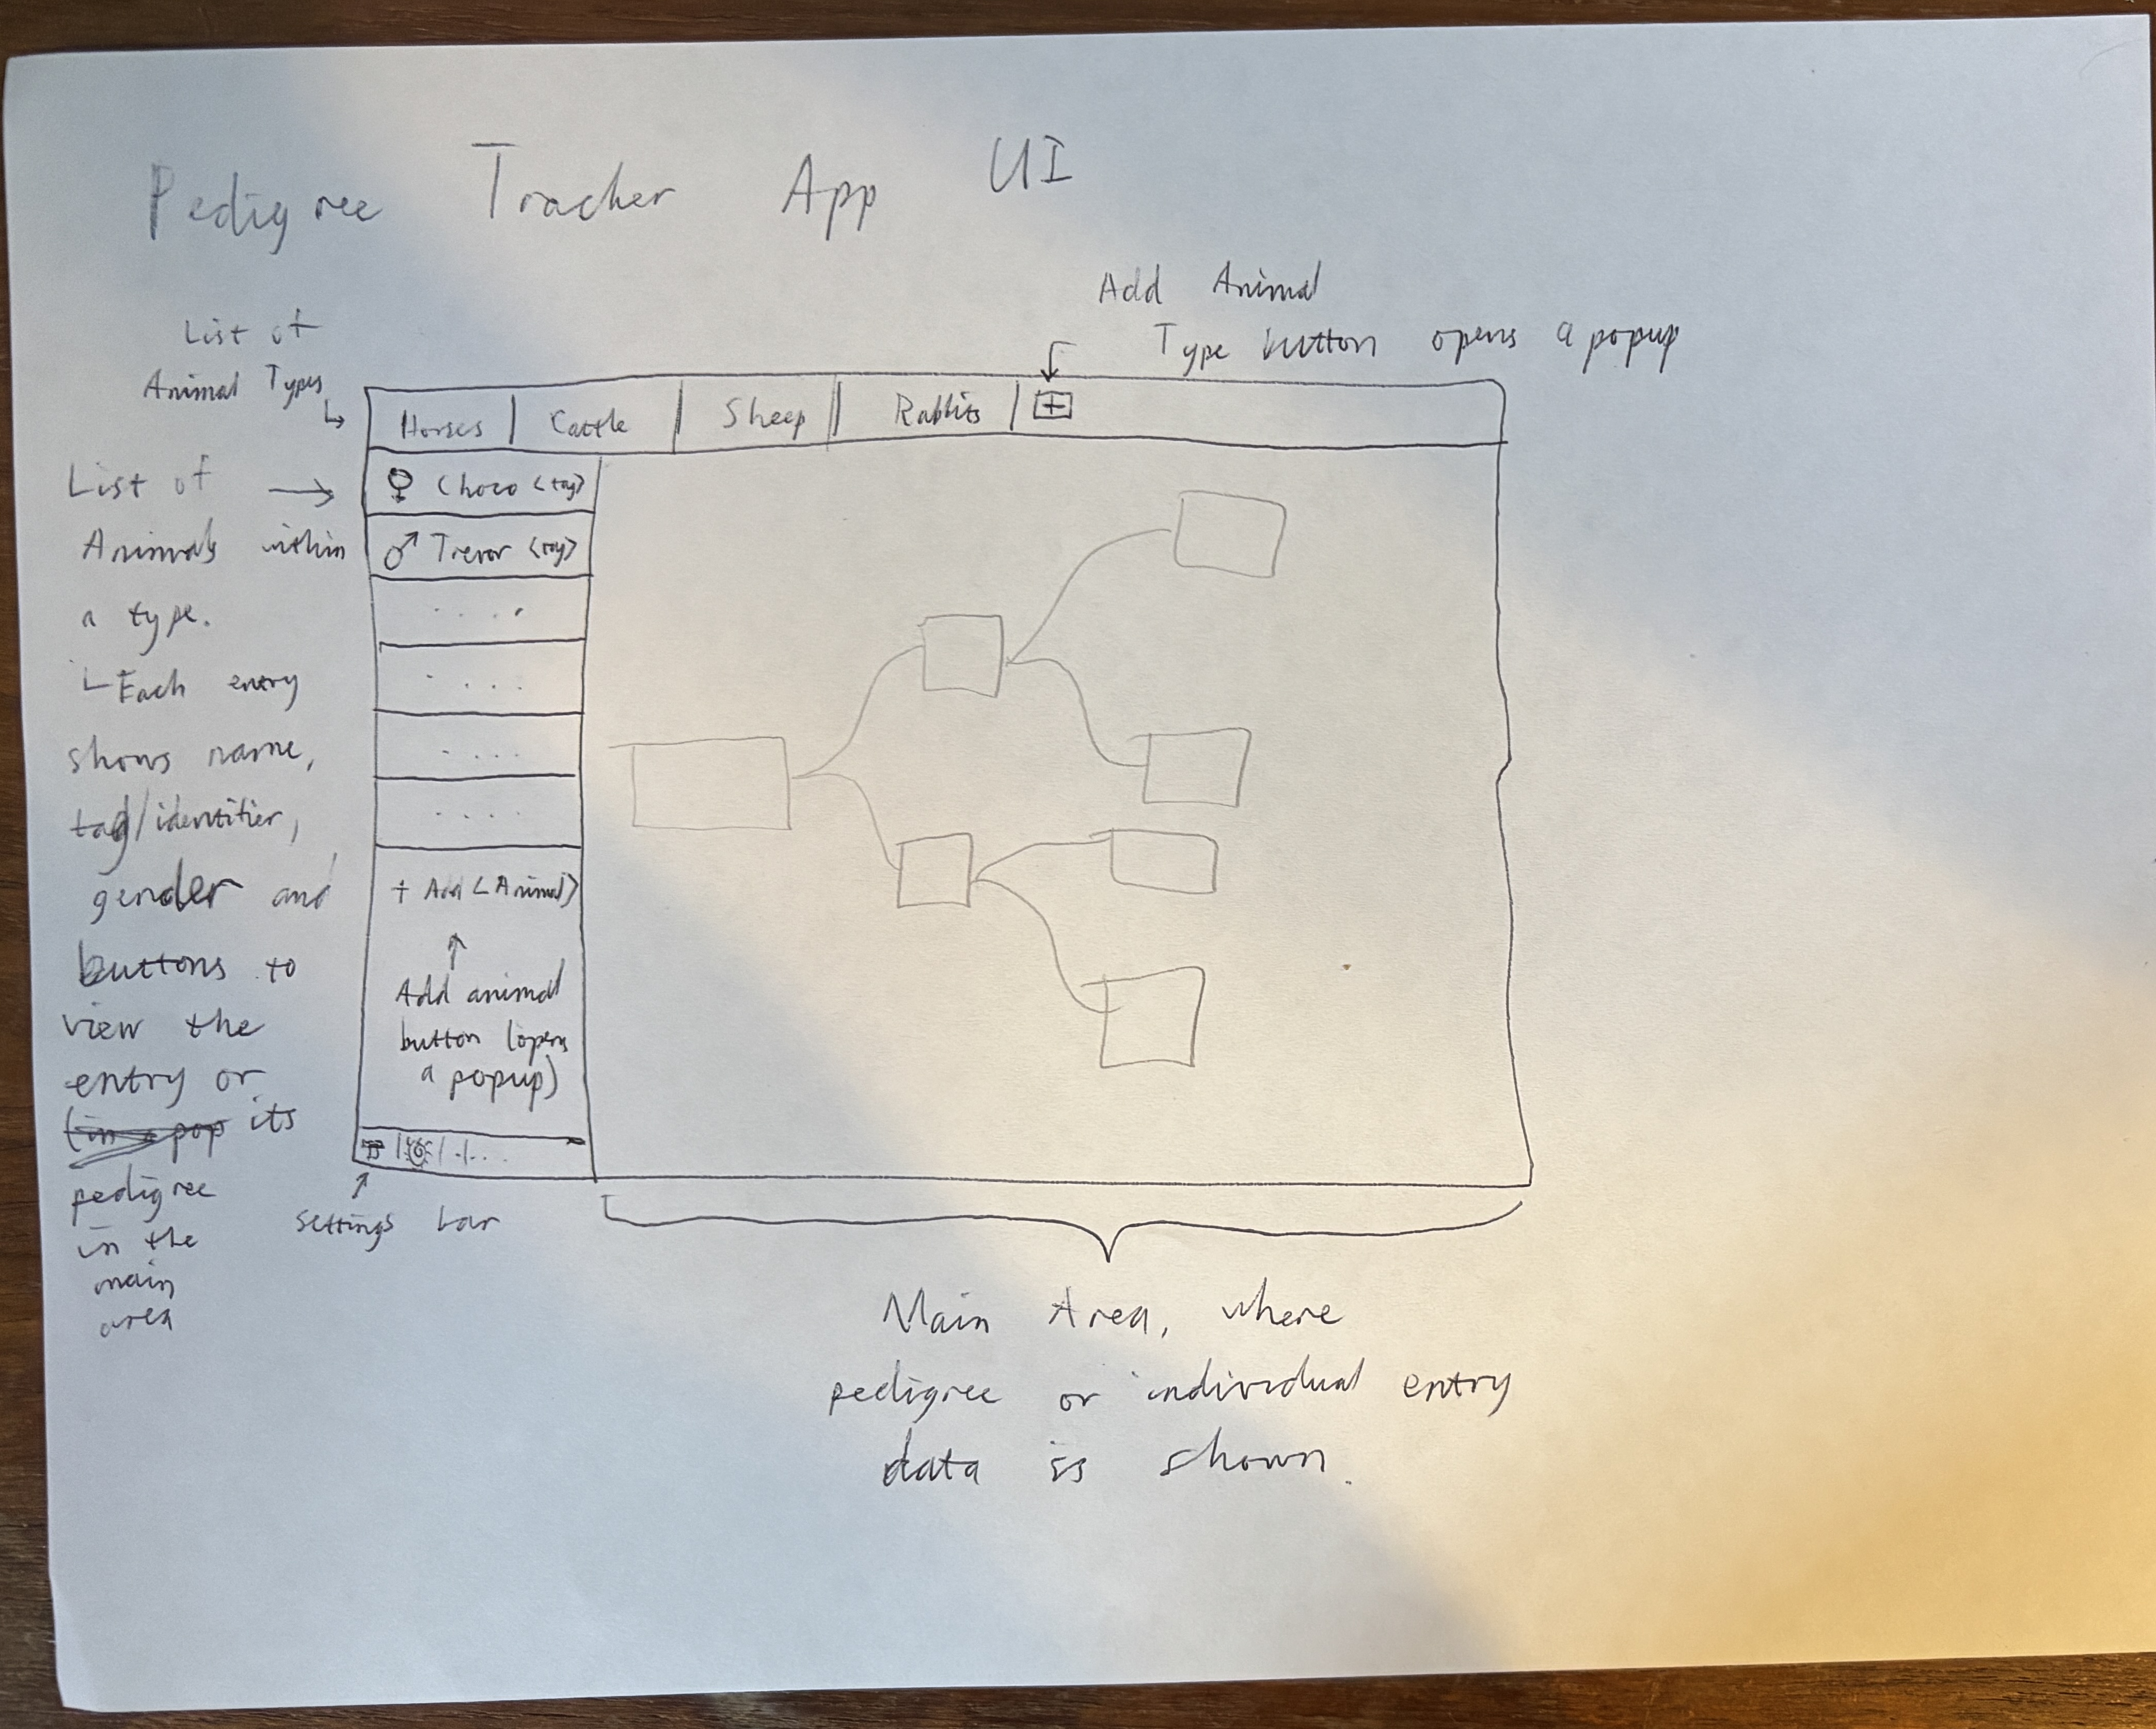 Pedigree Tracker App UI
Add Animal
Type button opens a popup
List of
Animal Types
Horses
Cattle
Sheep
Rabbits
+
List of
Animals within
a type.
Each entry
shows name,
tag/identifier,
gender and
buttons to
view the
entry or
its
pedigree
in the
main
area
♀ Choco <tag>
♂ Trevor <tag>
. . . .
. . . .
. . . .
. . . .
+ Add <Animal>
Add animal
button (opens
a popup)
settings bar
Main Area, where
pedigree or individual entry
data is shown.